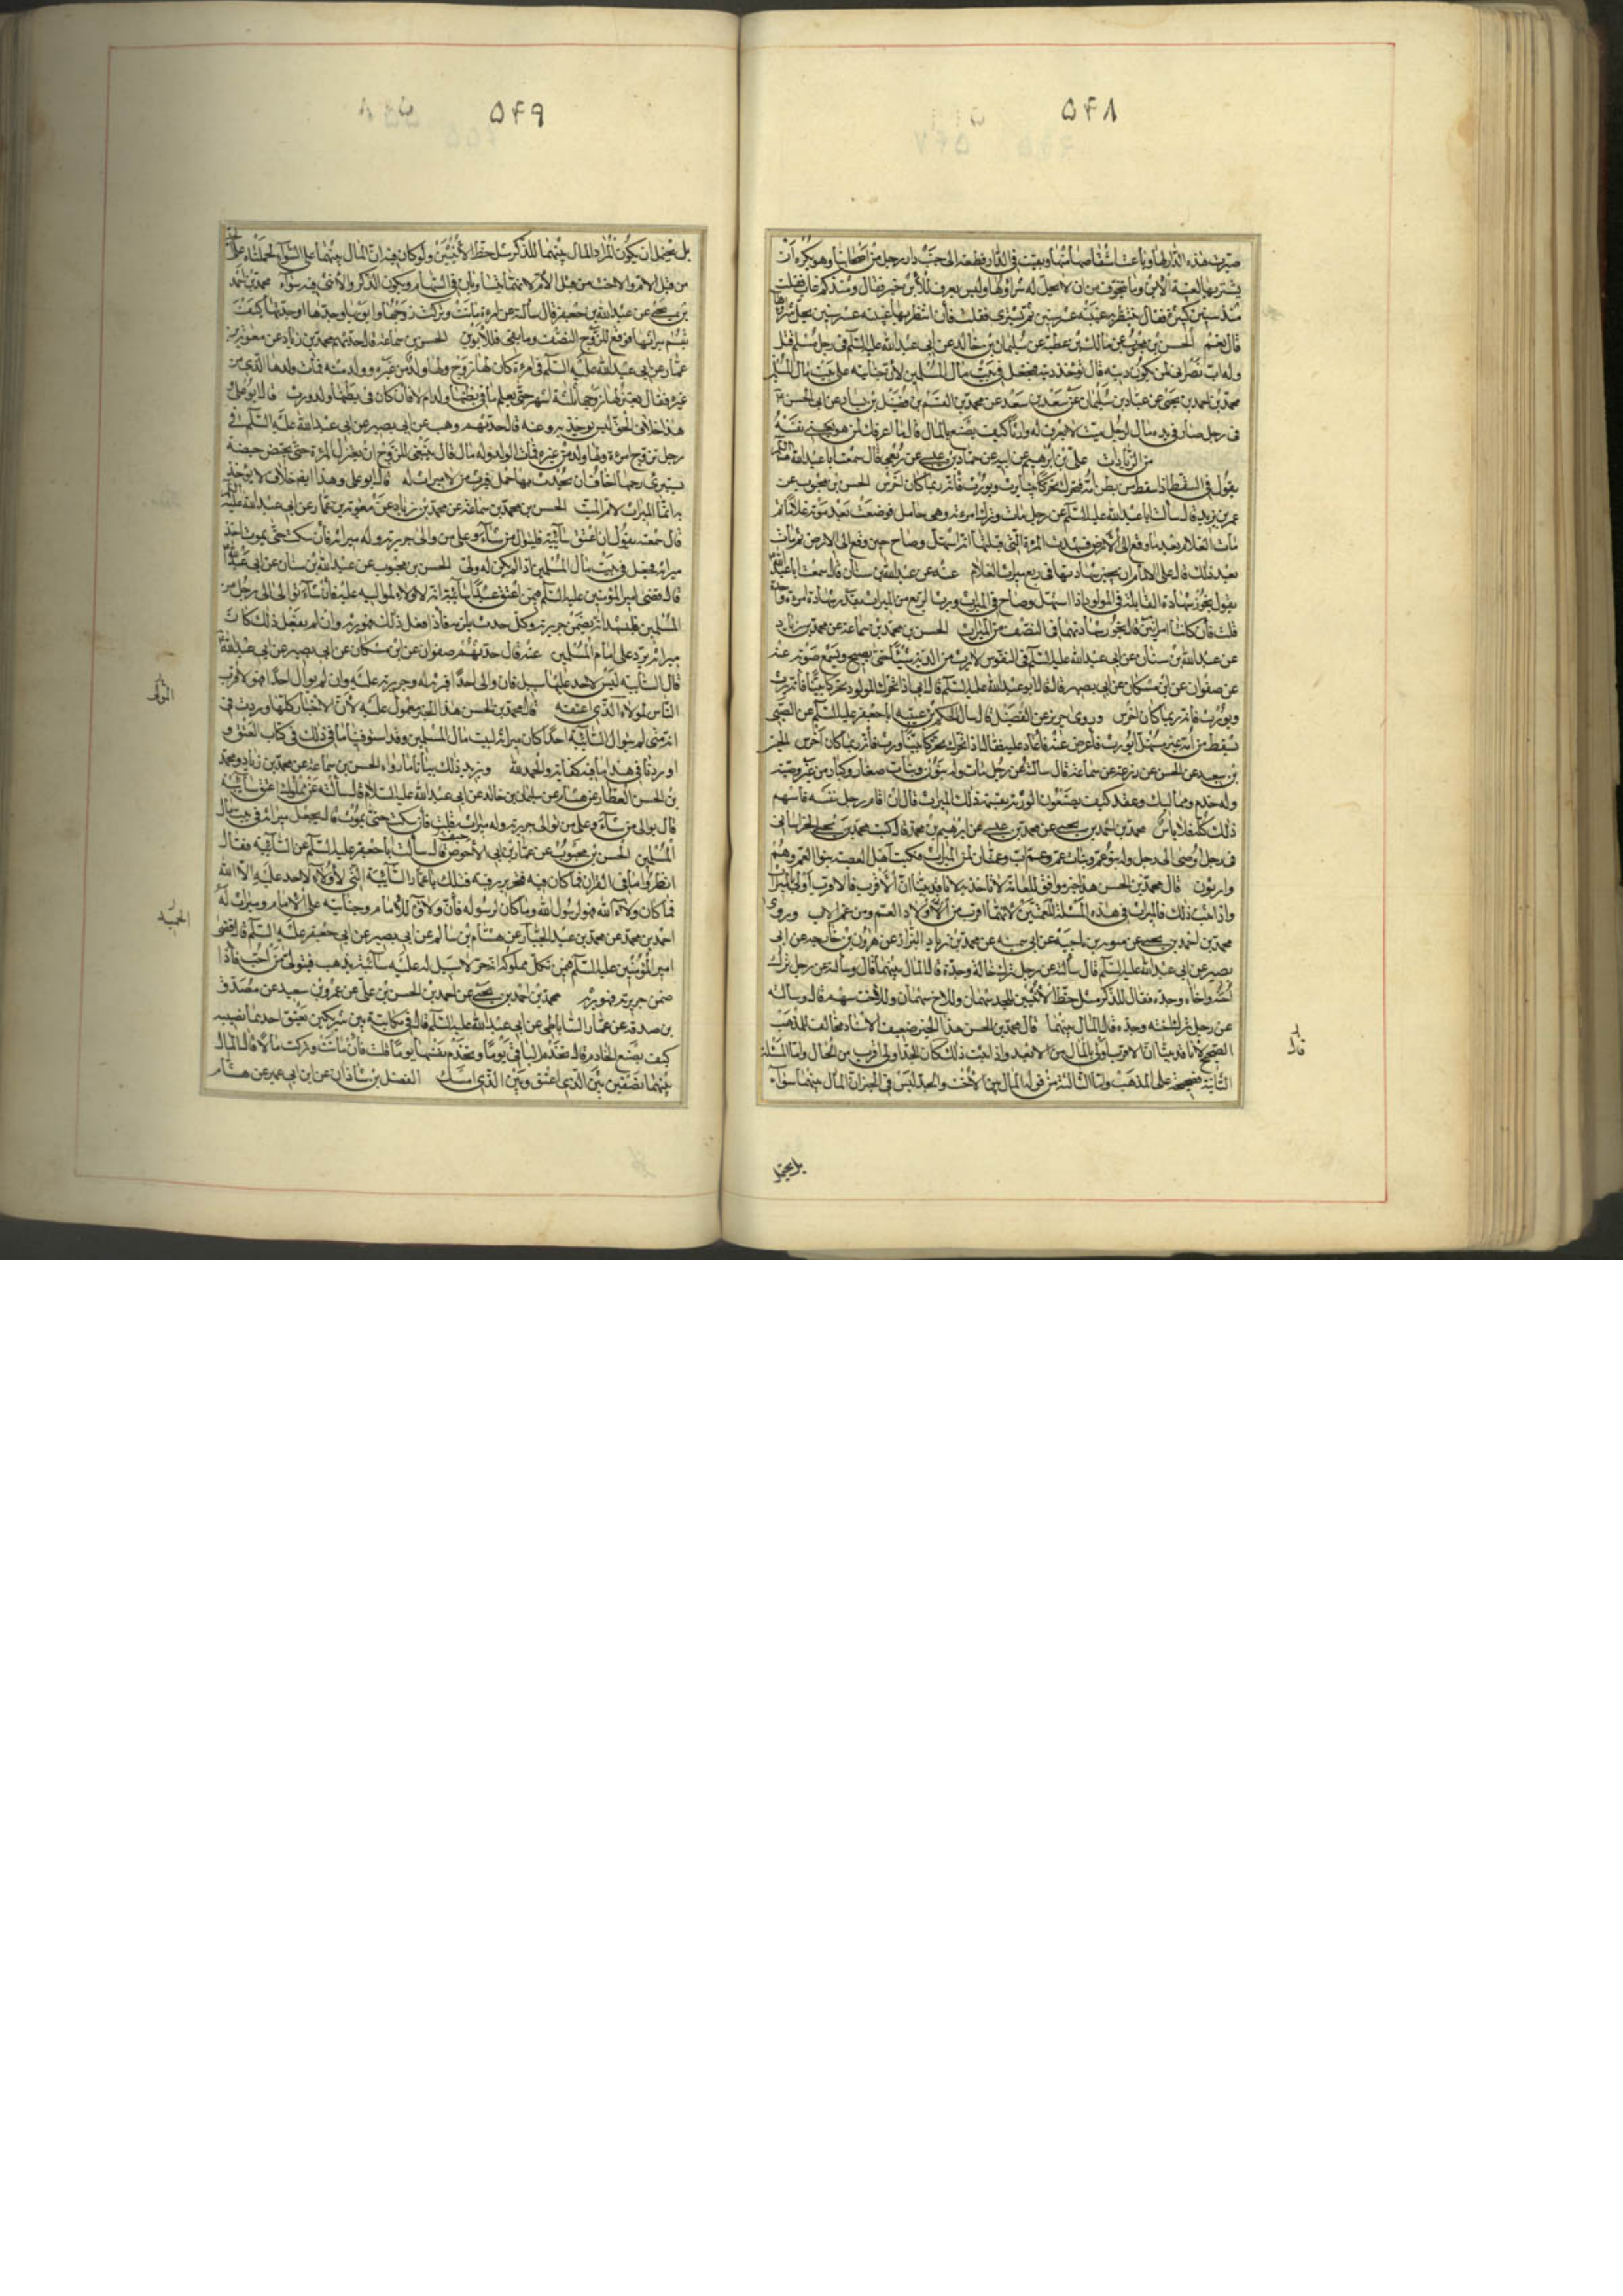 ۵۴۸
صيرت هذه الدار لها وباعت اشقاصها منها وبقيت في الدار قطعة الى جنب دار رجل من اصحابنا وهو يكره ان
يشتريها لغيبة الابن وما يتخوف من ان لا يحل له شراؤها وليس يعرف للابن خبر فقال ومنذ كم غاب فقلت
منذ سنين كثيرة فقال ينتظر به غيبته عشر سنين ثم يشترى فقلت فان انتظر بها غيبته عشر سنين يحل شراؤها
قال نعم الحسن بن محبوب عن مالك بن عطية عن سليمان بن خالد عن ابي عبد الله عليه السلم في رجل مسلم قتل
وله اب نصراني لمن يكون ديته قال تؤخذ ديته فيجعل في بيت مال المسلمين لان جنايته على بيت مال المسلمين
محمد بن احمد بن يحيى عن عباد بن سليمان عن سعد بن سعد عن محمد بن القسم بن فضيل بن يسار عن ابي الحسن
في رجل صار في يده مال لرجل ميت لا يعرف له وارثا كيف يصنع بالمال قال ما اعرفك لمن هو يعني نفسه
من الزيادات علي بن ابرهيم عن ابيه عن حماد بن عيسى عن ربعي قال سمعت ابا عبد الله عليه السلم
يقول في السقط اذا سقط من بطن امه فتحرك تحركا بينا يرث ويورث فانه ربما كان اخرس الحسن بن محبوب عن
عمر بن يزيد قال سألت ابا عبد الله عليه السلم عن رجل مات وترك امرءته وهي حامل فوضعت بعد موته غلاما ثم
مات الغلام بعد ما وقع الى الارض فشهدت المرءة التي قبلتها انه استهل وصاح حين وقع الى الارض ثم مات
بعد ذلك قال على الامام ان يجيز شهادتها في ربع ميراث الغلام عنه عن عبد الله بن سنان قال سمعت ابا عبد الله
يقول يجوز شهادة القابلة في المولود اذا استهل وصاح في الميراث ويرث الربع من الميراث بقدر شهادة امرءة واحدة
قلت فان كانتا امراتين قال يجوز شهادتهما في النصف من الميراث الحسن بن محمد بن سماعة عن محمد بن زياد
عن عبد الله بن سنان عن ابي عبد الله عليه السلم في المنفوس لا يرث من الدية شيئا حتى يصيح ويسمع صوته عنه
عن صفوان عن ابن مسكان عن ابي بصير قال قال ابو عبد الله عليه السلم قال ابي اذا تحرك المولود تحركا بينا فانه يرث
ويورث فانه ربما كان اخرس وروى حريز عن الفضيل قال سال الحكم بن عتيبة ابا جعفر عليه السلم عن الصبي
يسقط من امه غير مستهل ايورث فاعرض عنه فاعاد عليه فقال اذا تحرك تحركا بينا ورث فانه ربما كان اخرس الحسين
بن سعيد عن الحسن عن زرعة عن سماعة قال سالته عن رجل مات وله بنون وبنات صغار وكبار من غير وصية
وله خدم ومماليك وعقد كيف يصنعون الورثة بقسمة ذلك الميراث قال ان اقام رجل ثقة قاسهم
ذلك كله فلا باس محمد بن احمد بن يحيى عن محمد بن عيسى عن ابرهيم بن محمد قال كتب محمد بن يحيى الخراساني
في رجل اوصى الى رجل وله بنو عم وبنات عم وعم اب وعمتان لمن الميراث فكتب اهل العصبة بنو العم وهم
وارثون قال محمد بن الحسن هذا خبر موافق للعامة لا ناخذ به لانا قد بينا ان الاقرب فالاقرب اولى بالميراث
واذا ثبت ذلك فالميراث في هذه المسئلة للعمتين لانهما اقرب من اولاد العم ومن عم الاب وروى
محمد بن احمد بن يحيى عن سويد بن ناجية عن ابي سمينة عن محمد بن زياد البزاز عن هرون بن خارجة عن ابي
بصير عن ابي عبد الله عليه السلم قال سألته عن رجل ترك خالة وجده قال المال بينهما قال وسألته عن رجل ترك
اخته واخاه وجده فقال للذكر مثل حظ الانثيين للجد سهمان وللاخ سهمان وللاخت سهم قال وسالته
عن رجل ترك اخته وجده قال المال بينهما قال محمد بن الحسن هذا الخبر ضعيف الاسناد مخالف للمذهب
الصحيح لانا قد بينا ان الاقرب اولى بالمال من الابعد واذا ثبت ذلك كان الجد اولى اقرب من الخال واما المسئلة
الثانية صحيحة على المذهب واما الثالثة من قوله المال بين الاخت والجد ليس في الخبر ان المال بينهما سواء
بل يحتمل
قال
۵۴۹
بل يحتمل ان يكون المراد المال بينهما للذكر مثل حظ الانثيين ولو كان فيه ان المال بينهما على السواء لحملناه على الجد
من قبل الام والاخت من قبل الام لانهما يتساويان في السهام ويكون الذكر والانثى فيه سواء محمد بن احمد
بن يحيى عن عبد الله بن جعفر قال سألته عن امرءة ماتت وتركت زوجها وابويها وجدها او جدتها كيف
يقسم ميراثها فوقع للزوج النصف وما بقي فللابوين الحسن بن سماعة قال حدثهم محمد بن زياد عن معوية بن
عمار عن ابي عبد الله عليه السلم في امرءة كان لها زوج ولها ولد من غيره وولد منه فمات ولدها الذي من
غيره فقال يعتزلها زوجها ثلثة اشهر حتى يعلم ما في بطنها ولد ام لا فان كان في بطنها ولد ورث قال ابو علي
هذا خلاف الحق ليس يؤخذ به وعنه قال حدثهم وهيب عن ابي بصير عن ابي عبد الله عليه السلم في
رجل تزوج امرءة ولها ولد من غيره فمات الولد وله مال قال ينبغي للزوج ان يعتزل المرءة حتى تحيض حيضة
تستبرئ رحمها اخاف ان يحدث بها حمل فيرث من لا ميراث له قال ابو علي وهذا ايضا خلاف لا يؤخذ
به انما الميراث لام الميت الحسن بن محمد بن سماعة عن محمد بن زياد عن معوية بن عمار عن ابي عبد الله عليه السلم
قال سمعته يقول من اعتق سائبة فليتوال من شاء وعلى من والى جريرته وله ميراثه فان سكت حتى يموت اخذ
ميراثه فجعل في بيت مال المسلمين اذا لم يكن له ولي الحسن بن محبوب عن عبد الله بن سنان عن ابي عبد الله
قال قضى امير المؤمنين عليه السلم فيمن اعتق عبدا سائبة انه لا ولاء لمواليه عليه فان شاء توالى الى رجل من
المسلمين فليشهد انه يضمن جريرته وكل حدث يلزمه فاذا فعل ذلك فهو يرثه وان لم يفعل ذلك كان
ميراثه يرد على امام المسلمين عنه قال حدثهم صفوان عن ابن مسكان عن ابي بصير عن ابي عبد الله
قال السائبة ليس لاحد عليها سبيل فان والى احدا فميراثه له وجريرته عليه وان لم يوال احدا فهو لاقرب
الناس لمولاه الذي اعتقه قال محمد بن الحسن هذا الخبر غير معمول عليه لان الاخبار كلها وردت في
انه متى لم يتوال السائبة احدا كان ميراثه لبيت مال المسلمين وقد استوفينا ما في ذلك في كتاب العتق و
اوردنا في هذا ما فيه كفاية والحمد لله ويزيد ذلك بيانا ما رواه الحسن بن سماعة عن محمد بن زياد ومحمد
بن الحسن العطار عن هشام عن سليمان بن خالد عن ابي عبد الله عليه السلام قال سألته عن مملوك اعتق سائبة
قال يوالي من شاء وعلى من توالى جريرته وله ميراثه قلت فان سكت حتى يموت قال يجعل ميراثه في بيت مال
المسلمين الحسن بن محبوب عن عمار بن ابي الاحوص قال سألت ابا جعفر عليه السلم عن السائبة فقال
انظروا ما في القران فما كان فيه فتحرير رقبة فذلك يا عمار السائبة التي لا ولاء لاحد عليه الا الله
فما كان ولاءه لله فهو لرسول الله وما كان لرسوله فان ولاءه للامام وجنايته على الامام وميراثه له
احمد بن محمد عن محمد بن عبد الجبار عن هشام بن سالم عن ابي بصير عن ابي جعفر عليه السلم قال قضى
امير المؤمنين عليه السلم فيمن نكل مملوكه انه حر لا سبيل له عليه سائبة يذهب فيتولى من احب فاذا
ضمن جريرته فهو يرثه محمد بن احمد بن يحيى عن احمد بن الحسن بن علي عن عمرو بن سعيد عن مصدق
بن صدقة عن عمار الساباطي عن ابي عبد الله عليه السلم قال في مكاتبة بين شريكين يعتق احدهما نصيبه
كيف يصنع الخادم قال تخدم الباقي يوما وتخدم نفسها يوما قلت فان ماتت وتركت مالا قال المال
بينهما نصفين بين الذي اعتق وبين الذي امسك الفضل بن شاذان عن ابن ابي عمير عن هشام